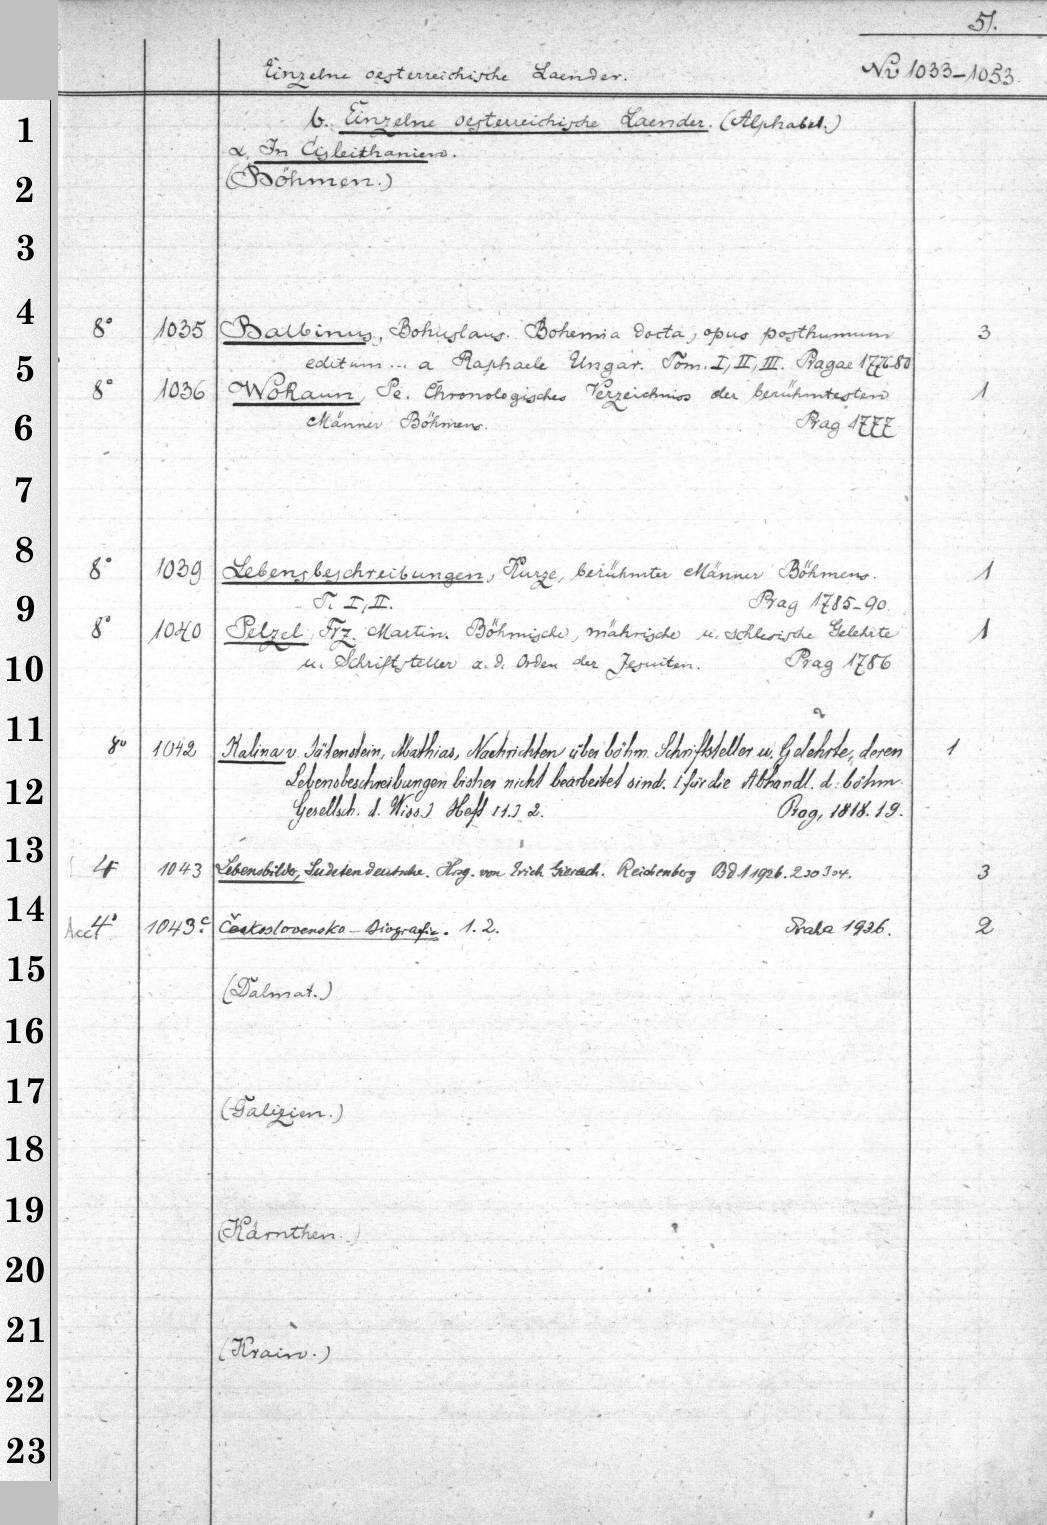 51.
Einzelne oesterreichische Laender. No 1033-1053.
1 b. Einzelne oesterreichische Laender. (Alphabet.)
α. In Cisleithanien.
2 (Böhmen.)
3
4 8° 1035 Balbinus, Bohuslaus. Bohemia docta, opus posthumum 3
5 editum ... a Raphaele Ungar. Tom. I, II, III. Pragae 1776-80
8° 1036 Wokaun, Pe. Chronologisches Verzeichniss der berühmtesten 1
6 Männer Böhmens. Prag 1777
7
8 8° 1039 Lebensbeschreibungen, Kurze, berühmter Männer Böhmens. 1
9 T. I, II. Prag 1785-90.
8° 1040 Pelzel, Frz. Martin. Böhmische, mährische u. schlesische Gelehrte 1
10 u. Schriftsteller a. d. Orden der Jesuiten. Prag 1786
11 8° 1042 Kalina v. Jätenstein, Mathias, Nachrichten über böhm. Schriftsteller u. Gelehrte, deren 1
12 Lebensbeschreibungen bisher nicht bearbeitet sind. (für die Abhandl. d. böhm.
Gesellsch. d. Wiss.) Heft 1.) 2. Prag, 1818. 19.
13 4 1043 Lebensbilder, Sudetendeutsche. Hrsg. von Erich Gierach. Reichenberg Bd 1 1926. 2 30 3 34. 3
14 Acct 4° 1043c. Československo-Biografie. 1. 2. Praha 1936. 2
15 (Dalmat.)
16
17 (Galizien.)
18
19 (Kärnthen.)
20
21 (Krain.)
22
23